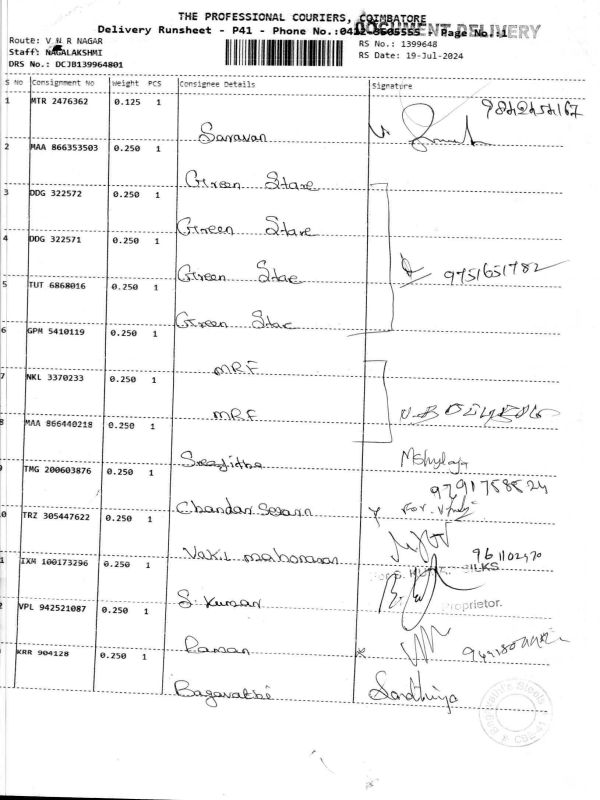 THE PROFESSIONAL COURIERS, COIMBATORE
DOCUMENT DELIVERY
Delivery Runsheet - P41 - Phone No.:0422-3505555 Page No.:1
Route: V N R NAGAR
RS No.: 1399648
Staff: NAGALAKSHMI
RS Date: 19-Jul-2024
DRS No.: DCJB139964801
S No Consignment No Weight PCS Consignee Details Signature
1 MTR 2476362 0.125 1
Saravan
2 MAA 866353503 0.250 1
Green Stare
3 DDG 322572 0.250 1
Green Stare
4 DDG 322571 0.250 1
Green Stae
9751651782
5 TUT 6868016 0.250 1
Green Stae
6 GPM 5410119 0.250 1
MRF
7 NKL 3370233 0.250 1
MRF
8 MAA 866440218 0.250 1
Sreejitha
MShylaja
9791758524
9 TMG 200603876 0.250 1
Chandan Sesann
For.
0 TRZ 305447622 0.250 1
Vakil mahoraan
1 IXM 100173296 0.250 1
SILKS
S. Kumar
Proprietor.
2 VPL 942521087 0.250 1
Raman
KRR 904128 0.250 1
Bagavathi
Sandhiya